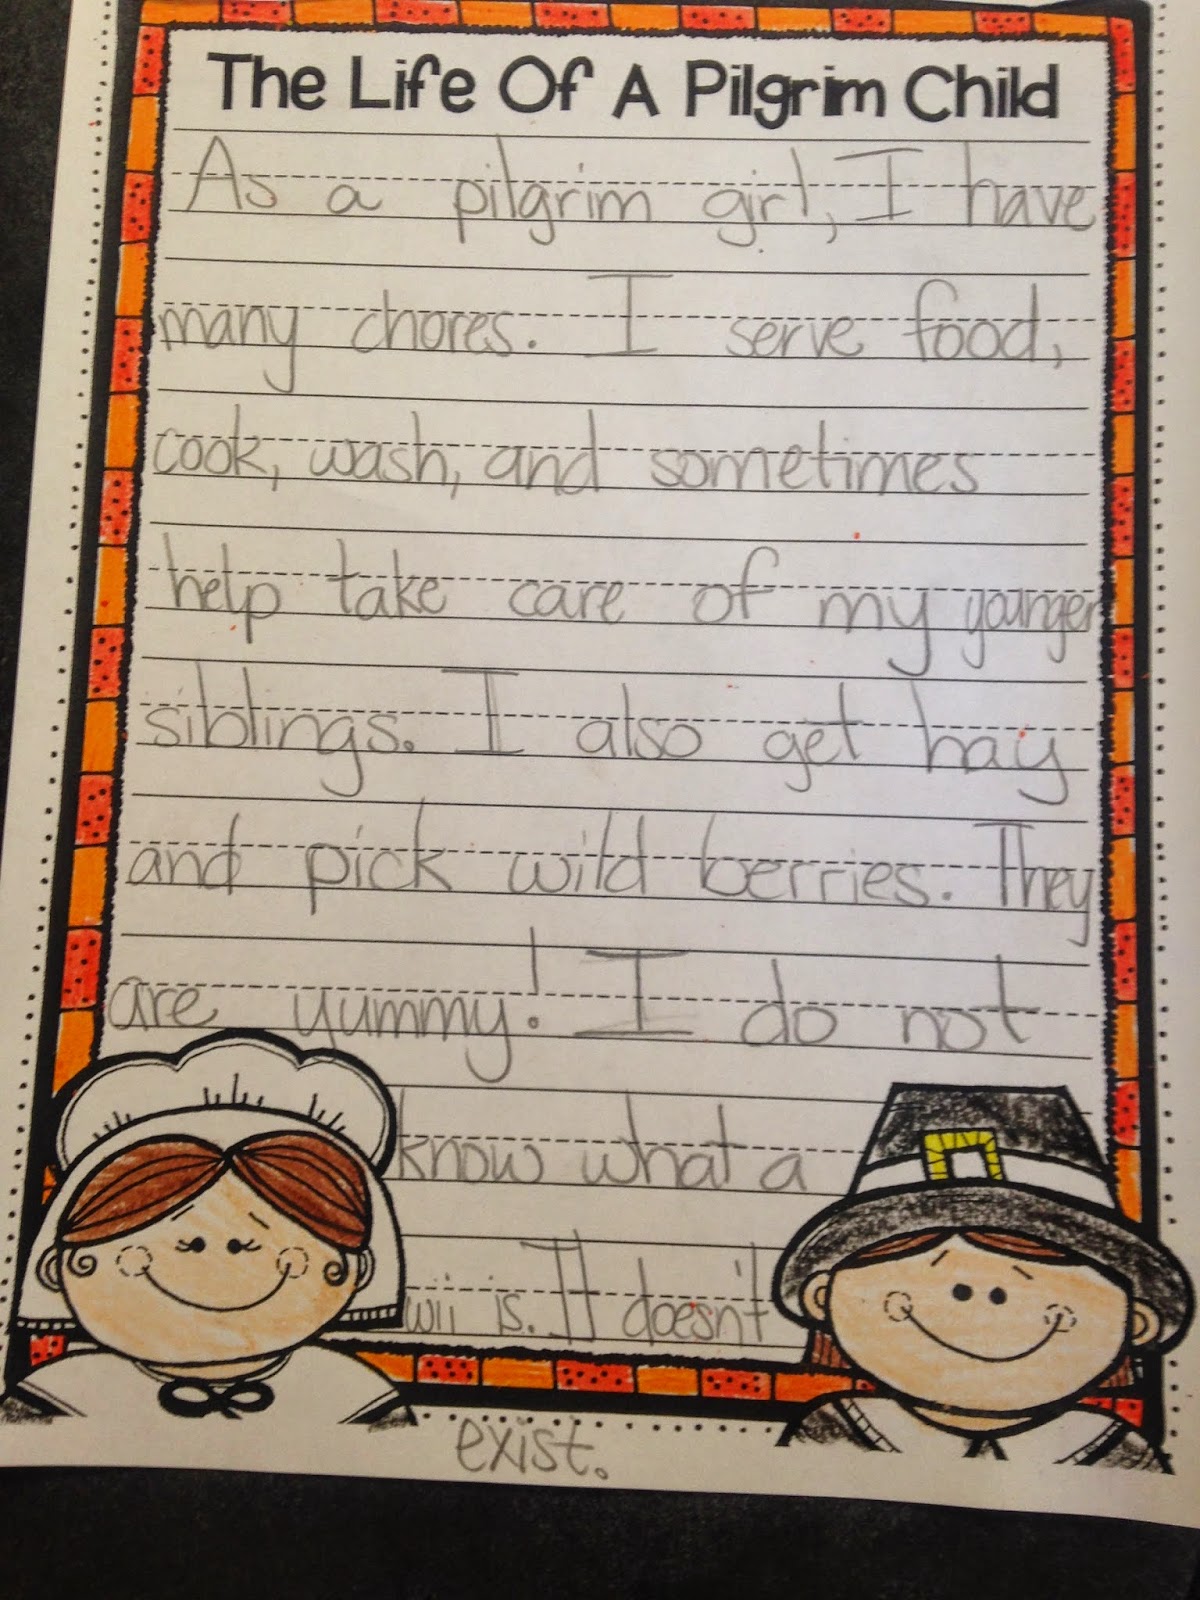 The Life Of A Pilgrim Child
As a pilgrim girl, I have
many chores. I serve food,
cook, wash, and sometimes
help take care of my younger
siblings. I also get hay
and pick wild berries. They
are yummy! I do not
know what a
wii is. It doesn't
exist.